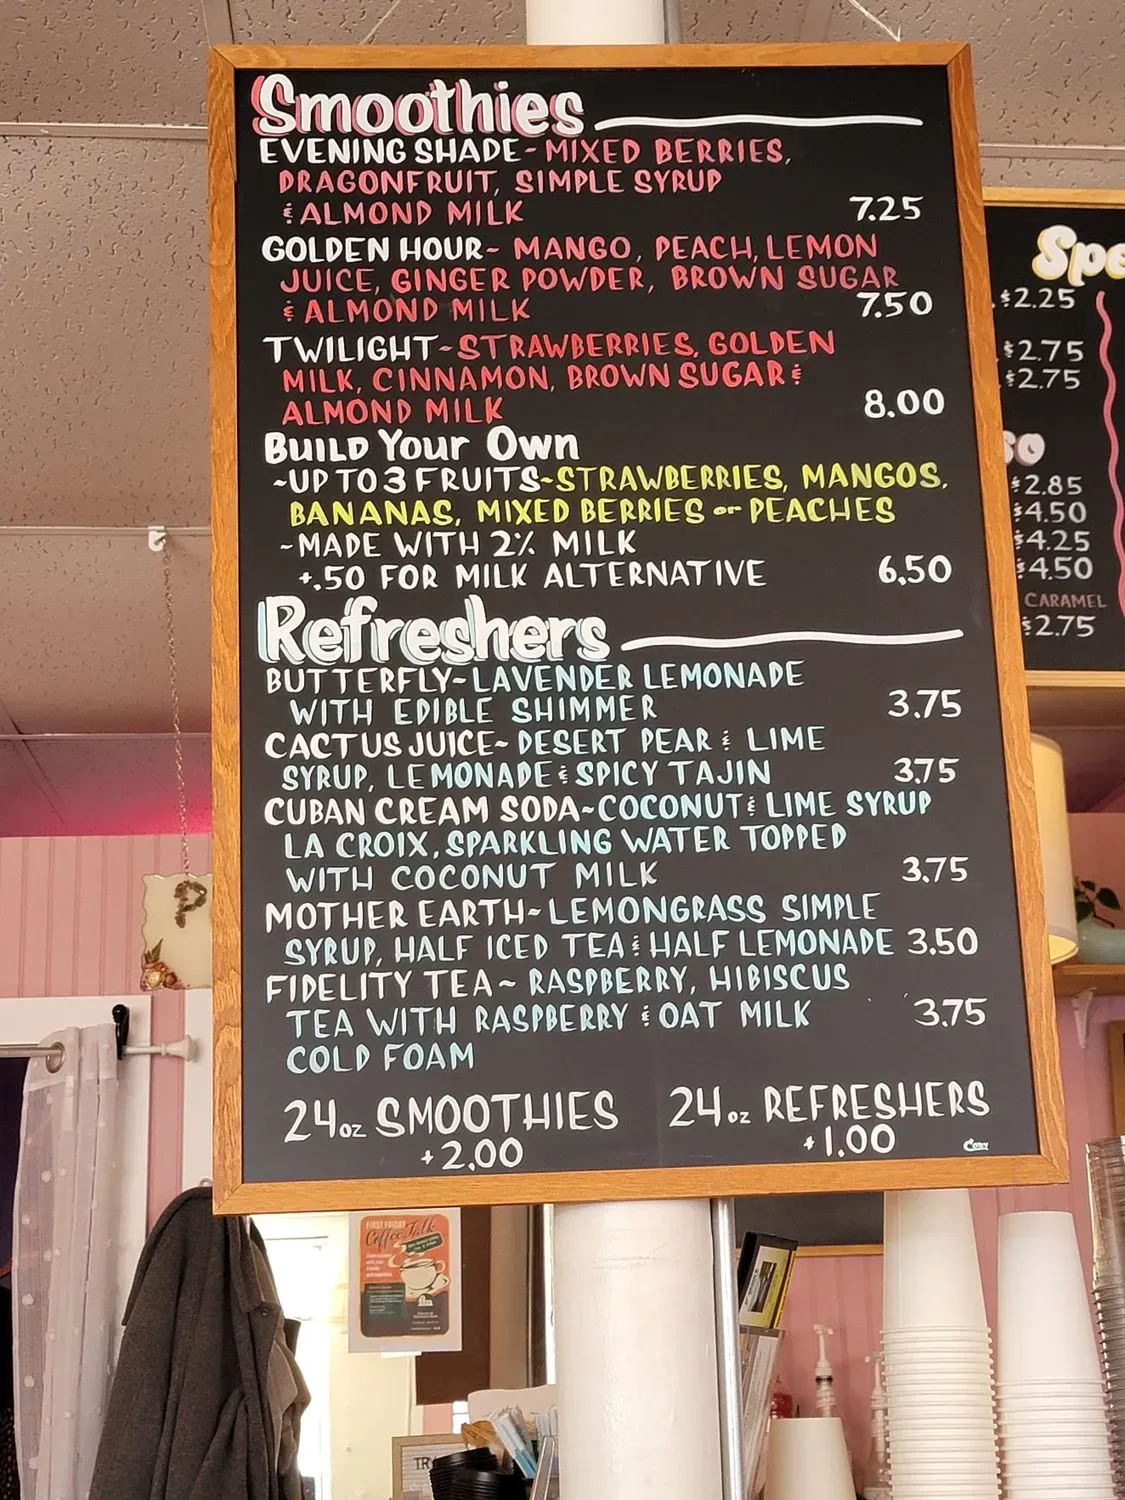 Smoothies
EVENING SHADE~MIXED BERRIES,
DRAGONFRUIT, SIMPLE SYRUP
& ALMOND MILK 7.25
GOLDEN HOUR~ MANGO, PEACH, LEMON
JUICE, GINGER POWDER, BROWN SUGAR
& ALMOND MILK 7.50
TWILIGHT~STRAWBERRIES, GOLDEN
MILK, CINNAMON, BROWN SUGAR &
ALMOND MILK 8.00
BUILD Your Own
~UP TO 3 FRUITS~STRAWBERRIES, MANGOS,
BANANAS, MIXED BERRIES or PEACHES
~MADE WITH 2% MILK
+.50 FOR MILK ALTERNATIVE 6.50
Refreshers
BUTTERFLY~LAVENDER LEMONADE
WITH EDIBLE SHIMMER 3.75
CACTUS JUICE~ DESERT PEAR & LIME
SYRUP, LEMONADE & SPICY TAJIN 3.75
CUBAN CREAM SODA~COCONUT & LIME SYRUP
LA CROIX, SPARKLING WATER TOPPED
WITH COCONUT MILK 3.75
MOTHER EARTH~LEMONGRASS SIMPLE
SYRUP, HALF ICED TEA & HALF LEMONADE 3.50
FIDELITY TEA~ RASPBERRY, HIBISCUS
TEA WITH RASPBERRY & OAT MILK 3.75
COLD FOAM
24oz SMOOTHIES
+2.00
24oz REFRESHERS
+1.00
Spe
$2.25
$2.75
$2.75
so
$2.85
$4.50
$4.25
$4.50
CARAMEL
$2.75
P
FIRST FRIDAY
Coffee Talk
TR